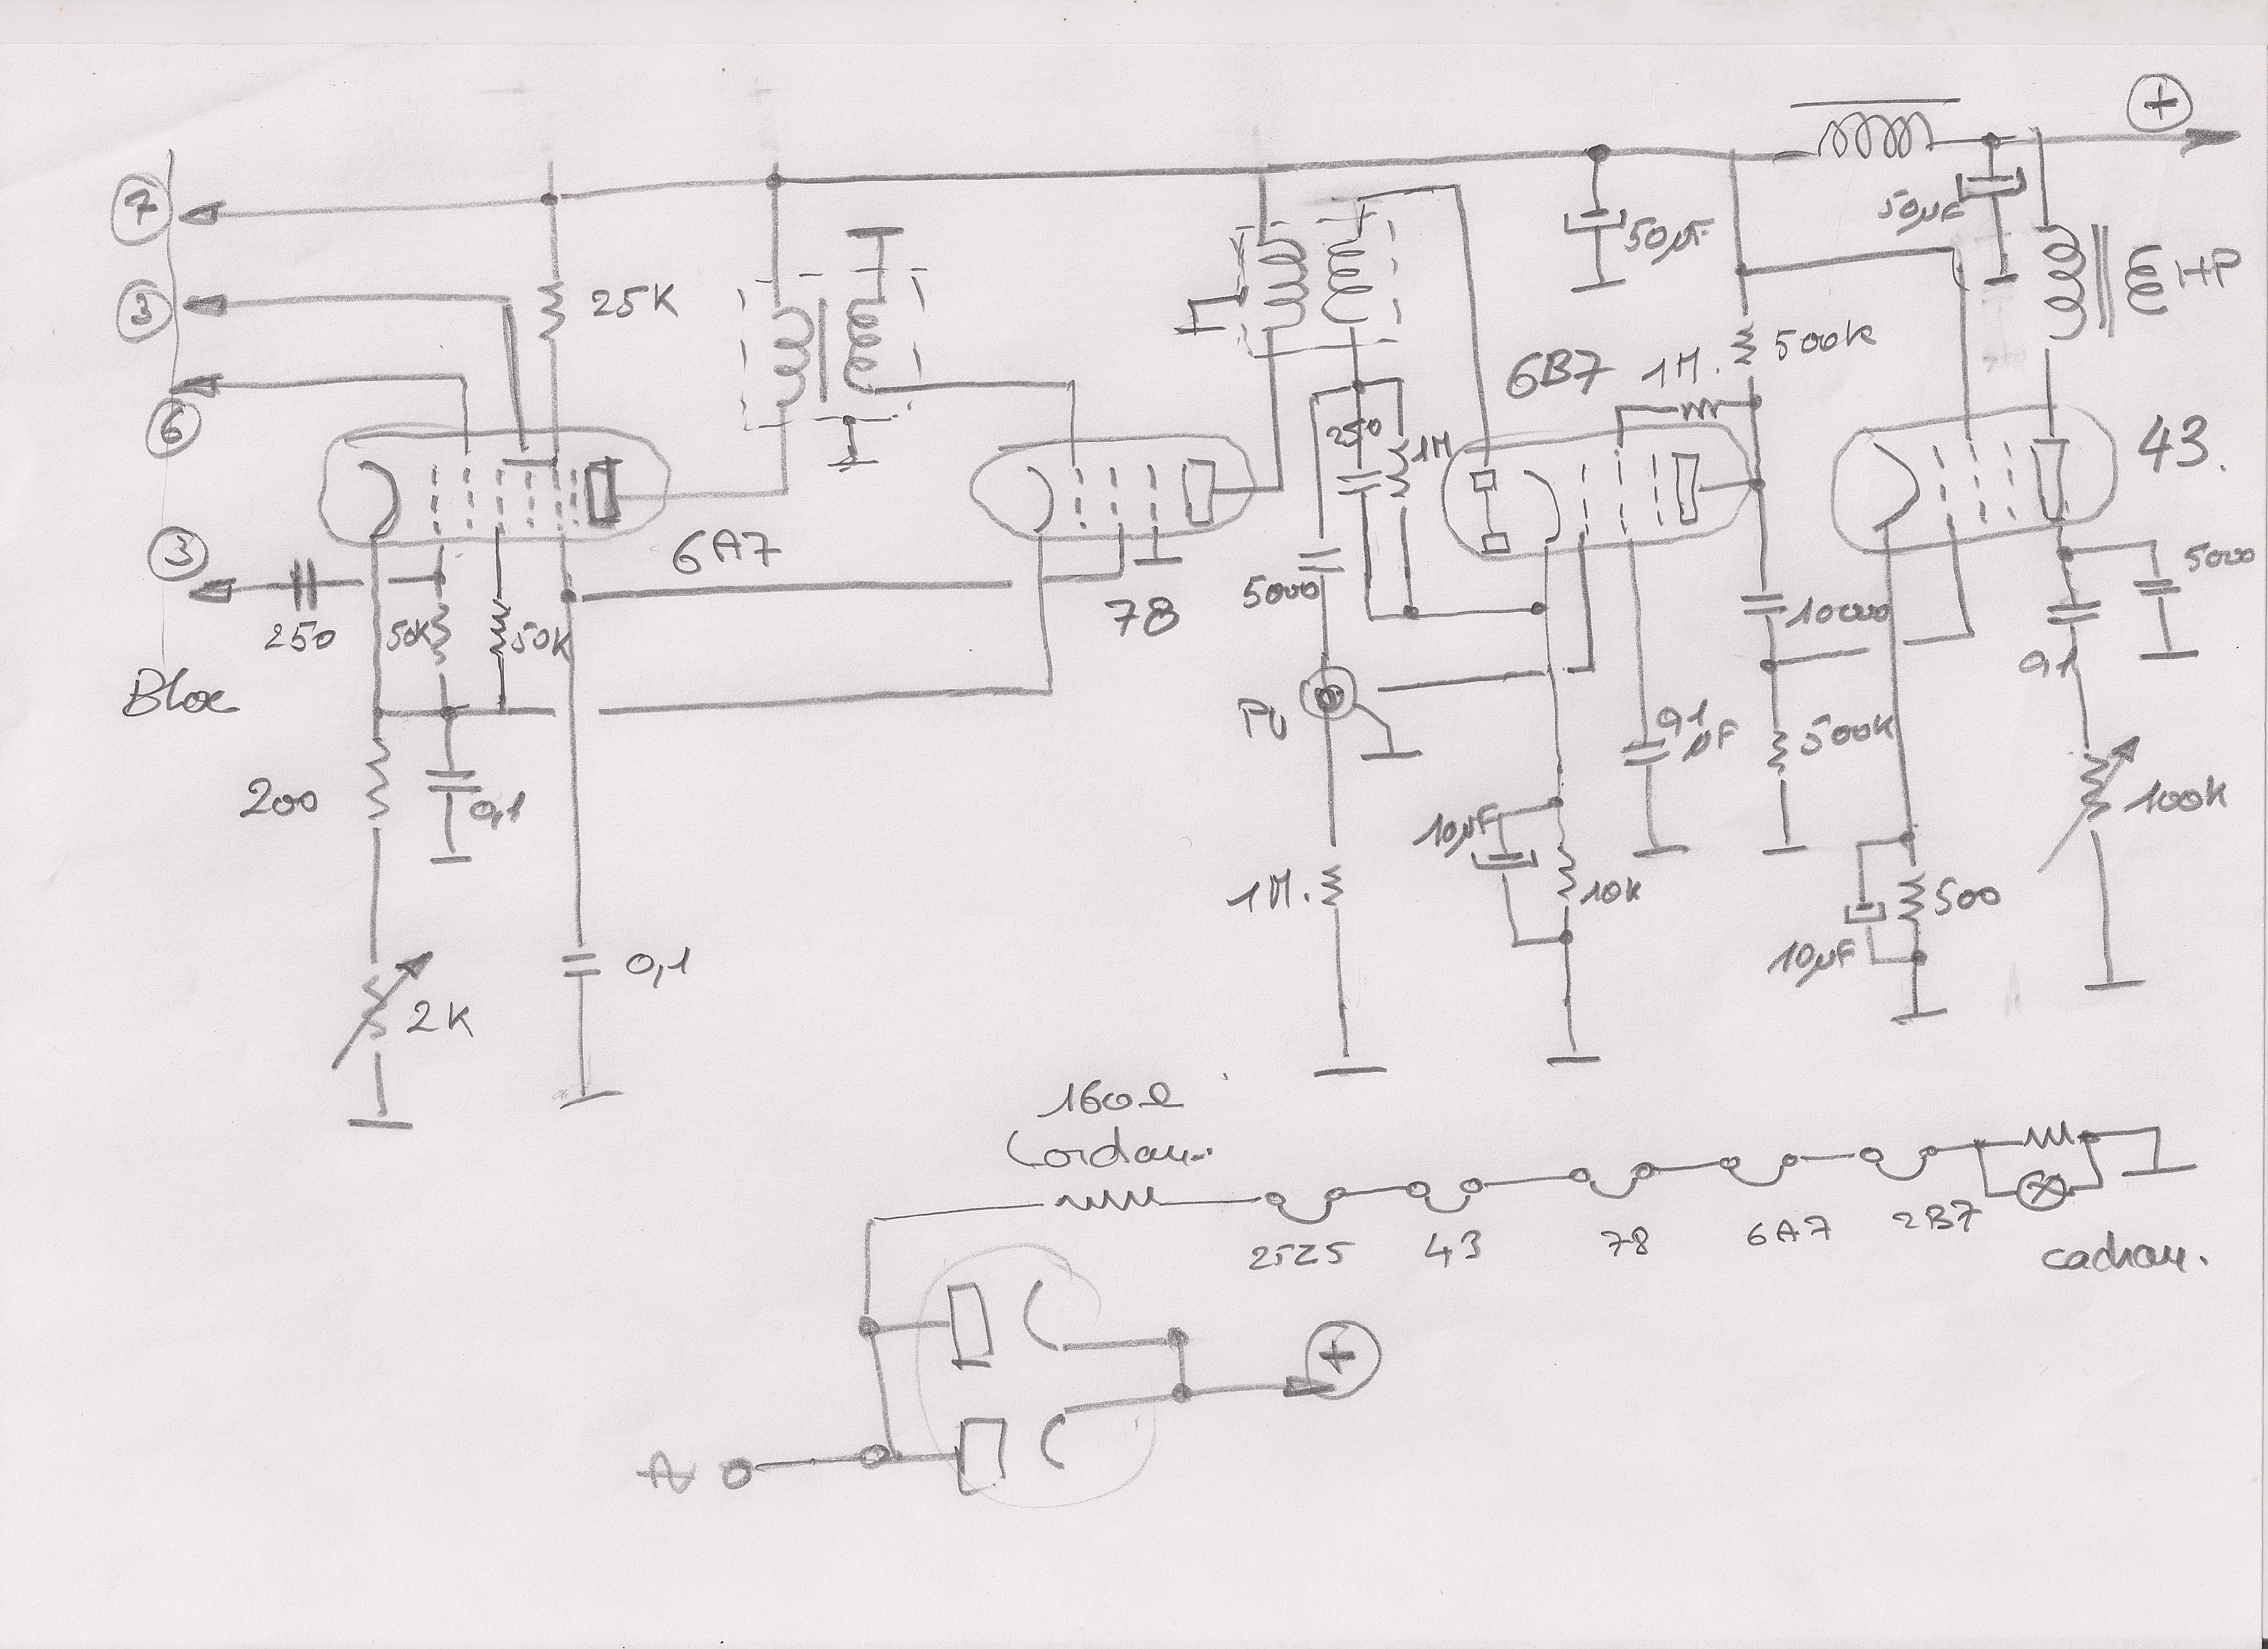 +
7
50µF
50µF
HP
25K
3
500K
6B7
1M.
6
250
1M
43.
3
6A7
5000
5000
78
10000
250
50K
50K
0,1
Bloc
PU
0,1
µF
500K
200
0,1
10µF
100K
1M.
10K
500
10µF
0,1
2K
160Ω
Cordon
25Z5
43
78
6A7
2B7
cadran.
+